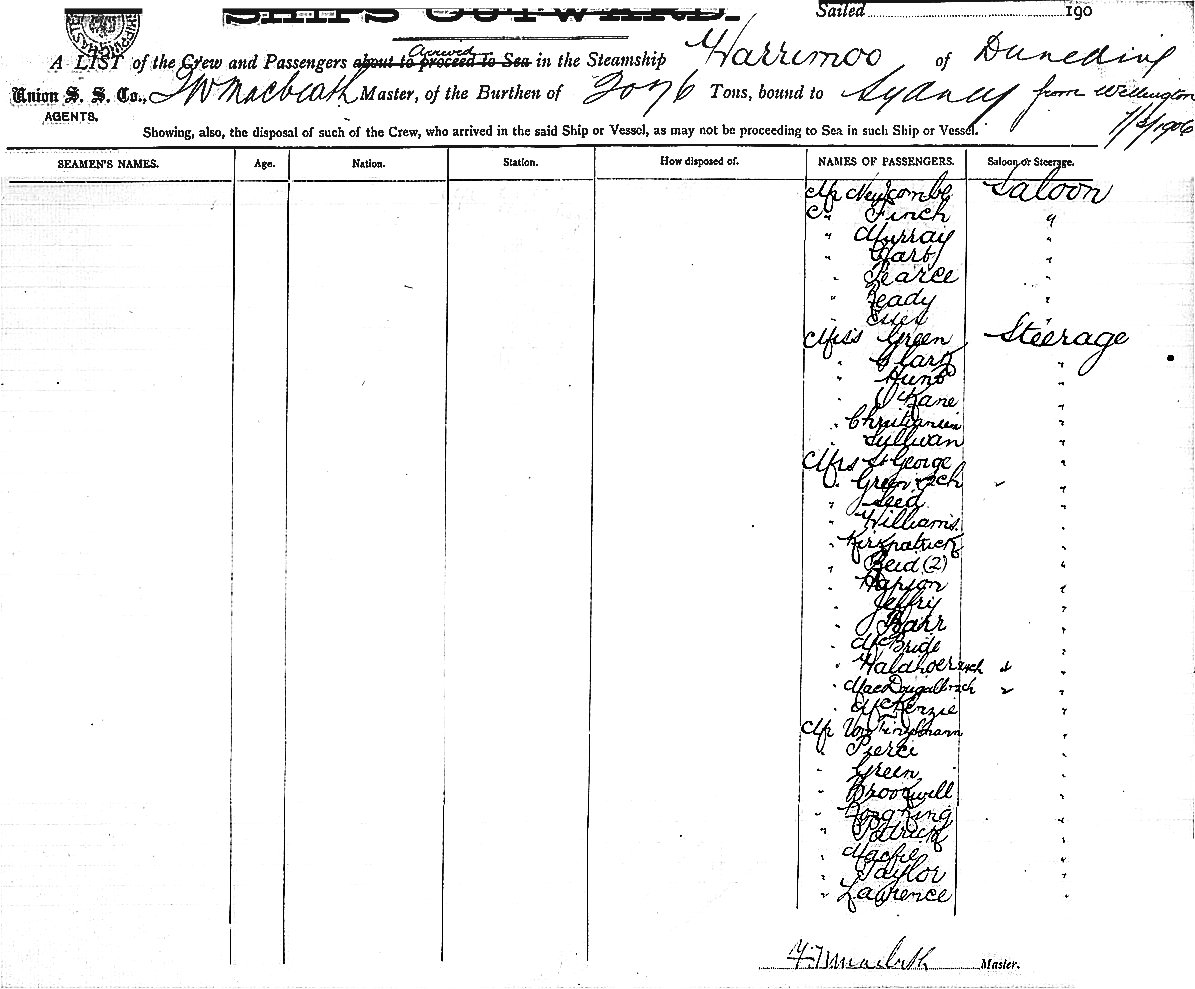 SHIPS OUTWARD.
Sailed 190
SHIPPING MASTER
A LIST of the Crew and Passengers about to proceed to Sea Arrived in the Steamship Warrimoo of Dunedin
Union S. S. Co., Macbeath Master, of the Burthen of 2076 Tons, bound to Sydney from Wellington
AGENTS.
7/2/1906
Showing, also, the disposal of such of the Crew, who arrived in the said Ship or Vessel, as may not be proceeding to Sea in such Ship or Vessel.
SEAMEN'S NAMES. Age. Nation. Station. How disposed of. NAMES OF PASSENGERS. Saloon or Steerage.
Mr Newcombe Saloon
Finch "
" Murray "
" "
" Pearce "
" Ready "
"
Miss Green Steerage
" Clark "
" Hunt "
O'Kane "
" "
" Sullivan "
Mrs St George "
" Green "
" Seed "
" Williams "
" Kirkpatrick "
" Reid (2) "
" "
" Jeffry "
" "
" McBride "
" "
" MacDougall "
" McKenzie "
Mr "
" Pierce "
" Green "
" "
" "
" Patrick "
" Mackie "
" Taylor "
" Lawrence "
Master.